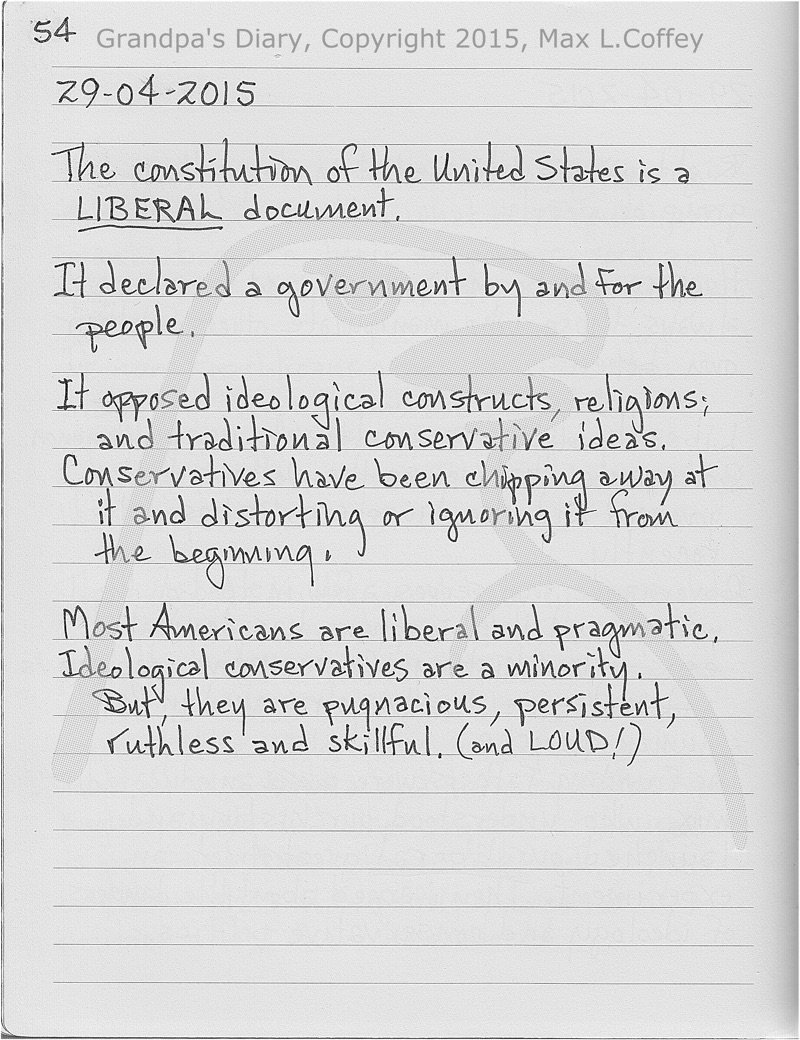 54
Grandpa's Diary, Copyright 2015, Max L.Coffey
29-04-2015
The constitution of the United States is a
LIBERAL document.
It declared a government by and for the
people.
It opposed ideological constructs, religions;
and traditional conservative ideas.
Conservatives have been chipping away at
it and distorting or ignoring it from
the beginning.
Most Americans are liberal and pragmatic.
Ideological conservatives are a minority.
But, they are pugnacious, persistent,
ruthless and skillful. (and LOUD!)